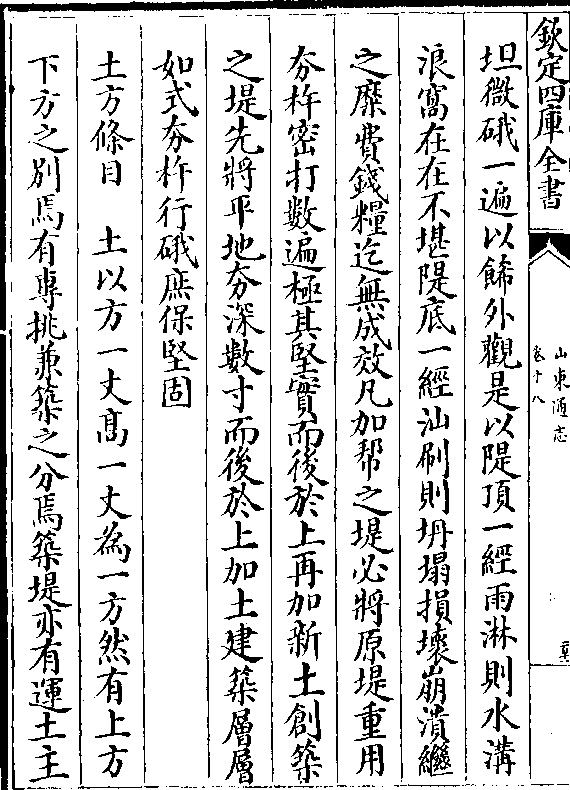 欽定四庫全書
山東通志
卷十八
坦微硪一遍以餙外觀是以隄頂一經雨淋則水溝
浪窩在在不堪隄底一經汕刷則坍塌損壞崩潰繼
之糜費錢糧迄無成效凡加帮之堤必將原堤重用
夯杵密打數遍極其堅實而後於上再加新土創築
之堤先將平地夯深數寸而後於上加土建築層層
如式夯杵行硪庶保堅固
土方條目　土以方一丈高一丈為一方然有上方
下方之别焉有專挑兼築之分焉築堤亦有運土主